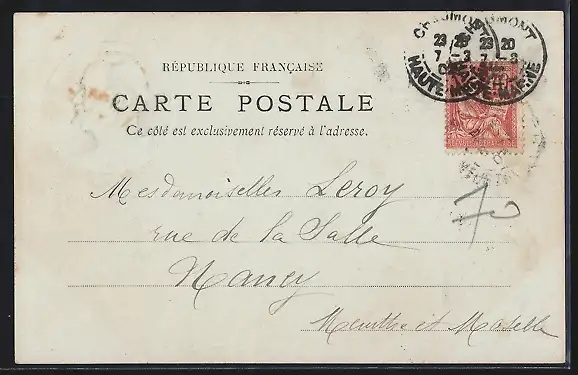 CHAUMONT
23 20
7 - 3
HAUTE-MARNE
RÉPUBLIQUE FRANÇAISE
CARTE POSTALE
Ce côté est exclusivement réservé à l'adresse.
Mesdemoiselles Leroy
rue de la Salle
Nancy
Meurthe et Moselle
70